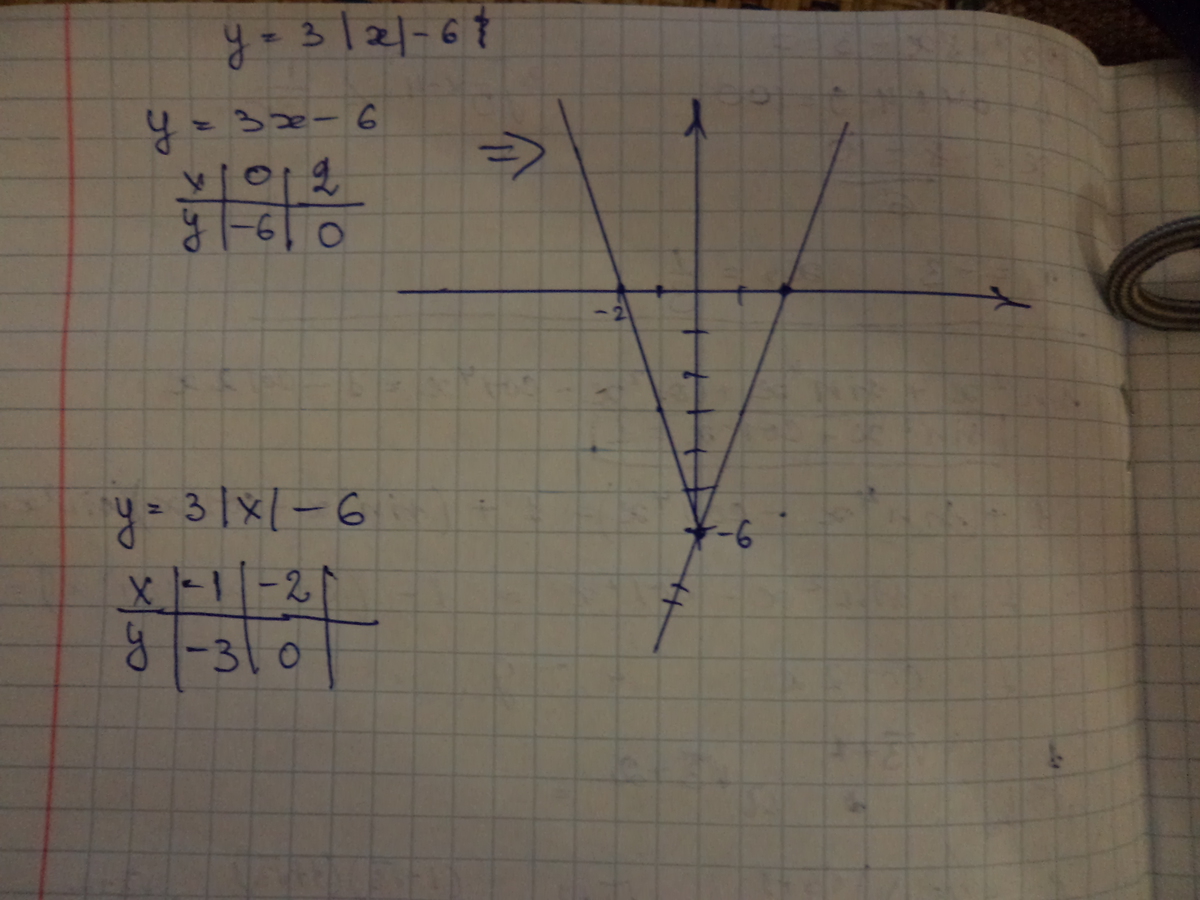 y = 3|x|-6
y = 3x - 6
x | 0 | 2
y | -6 | 0
=>
-2
-6
y = 3|x| - 6
x | -1 | -2 |
y | -3 | 0 |